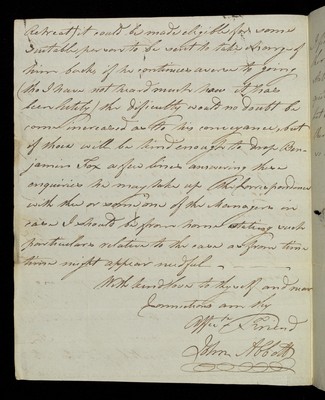 Retreat, it could be made eligible for some
suitable person to be sent to take charge of
him back, if he continues averse to going
tho I have not heard much how it has
been lately, the difficulty would no doubt be
come increased as to his conveyance, but
if thou will be kind enough to drop Ben-
jamin Fox a few lines answering these
enquiries he may take up the Correspondence
with thee or some one of the Managers in
case I should be from home stating such
particulars relative to the case as from time
time might appear needful
With kind love to thyself and near
Connections am thy
Affect. Friend
John Abbott